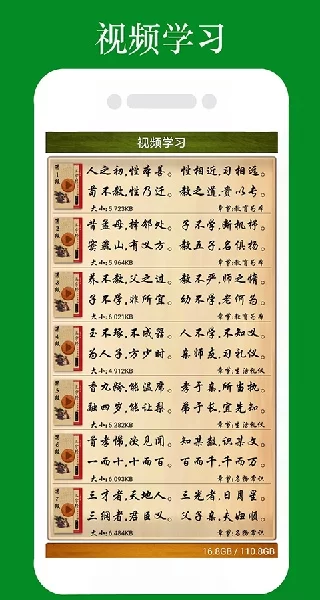 视频学习
视频学习
第1段
人之初,性本善。 性相近,习相远。
苟不教,性乃迁。 教之道,贵以专。
大小:5.723KB 章节:教育为本
第2段
昔孟母,择邻处。 子不学,断机杼。
窦燕山,有义方。 教五子,名俱扬。
大小:5.964KB 章节:教育为本
第3段
养不教,父之过。 教不严,师之惰。
子不学,非所宜。 幼不学,老何为。
大小:6.021KB 章节:教育为本
第4段
玉不琢,不成器。 人不学,不知义。
为人子,方少时。 亲师友,习礼仪。
大小:4.912KB 章节:生活礼仪
第5段
香九龄,能温席。 孝于亲,所当执。
融四岁,能让梨。 弟于长,宜先知。
大小:6.382KB 章节:生活礼仪
第6段
首孝悌,次见闻。 知某数,识某文。
一而十,十而百。 百而千,千而万。
大小:6.093KB 章节:名物常识
第7段
三才者,天地人。 三光者,日月星。
三纲者,君臣义。 父子亲,夫妇顺。
大小:6.484KB 章节:名物常识
16.8GB / 110.8GB